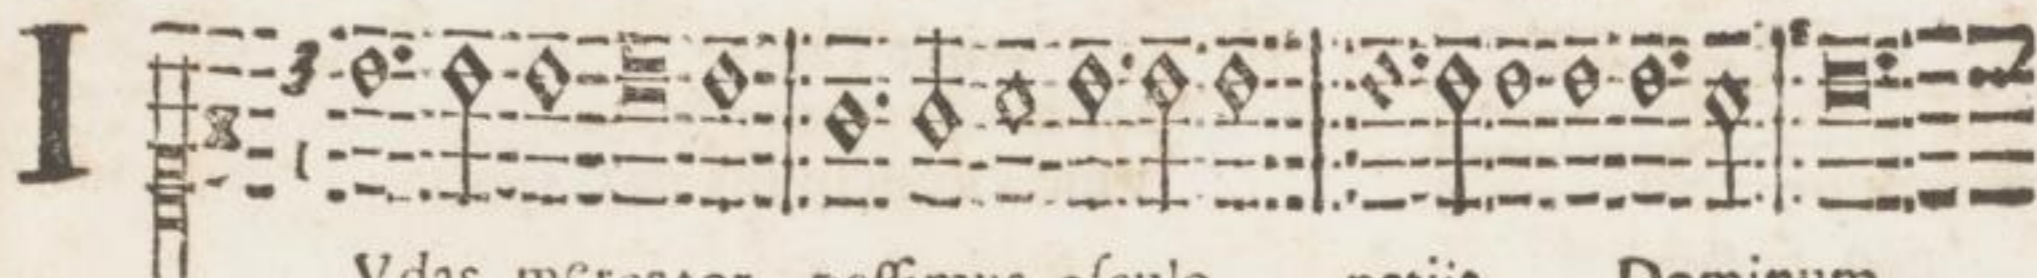 I
3
1
Vdas mercator pessimus osculo petijt Dominum